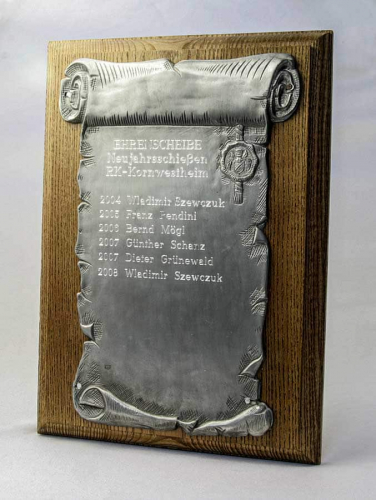 EHRENSCHEIBE
Neujahrsschießen
RK-Kornwestheim
2004 Wladimir Szewczuk
2005 Franz Pendini
2006 Bernd Mögl
2007 Günther Schanz
2007 Dieter Grünewald
2008 Wladimir Szewczuk